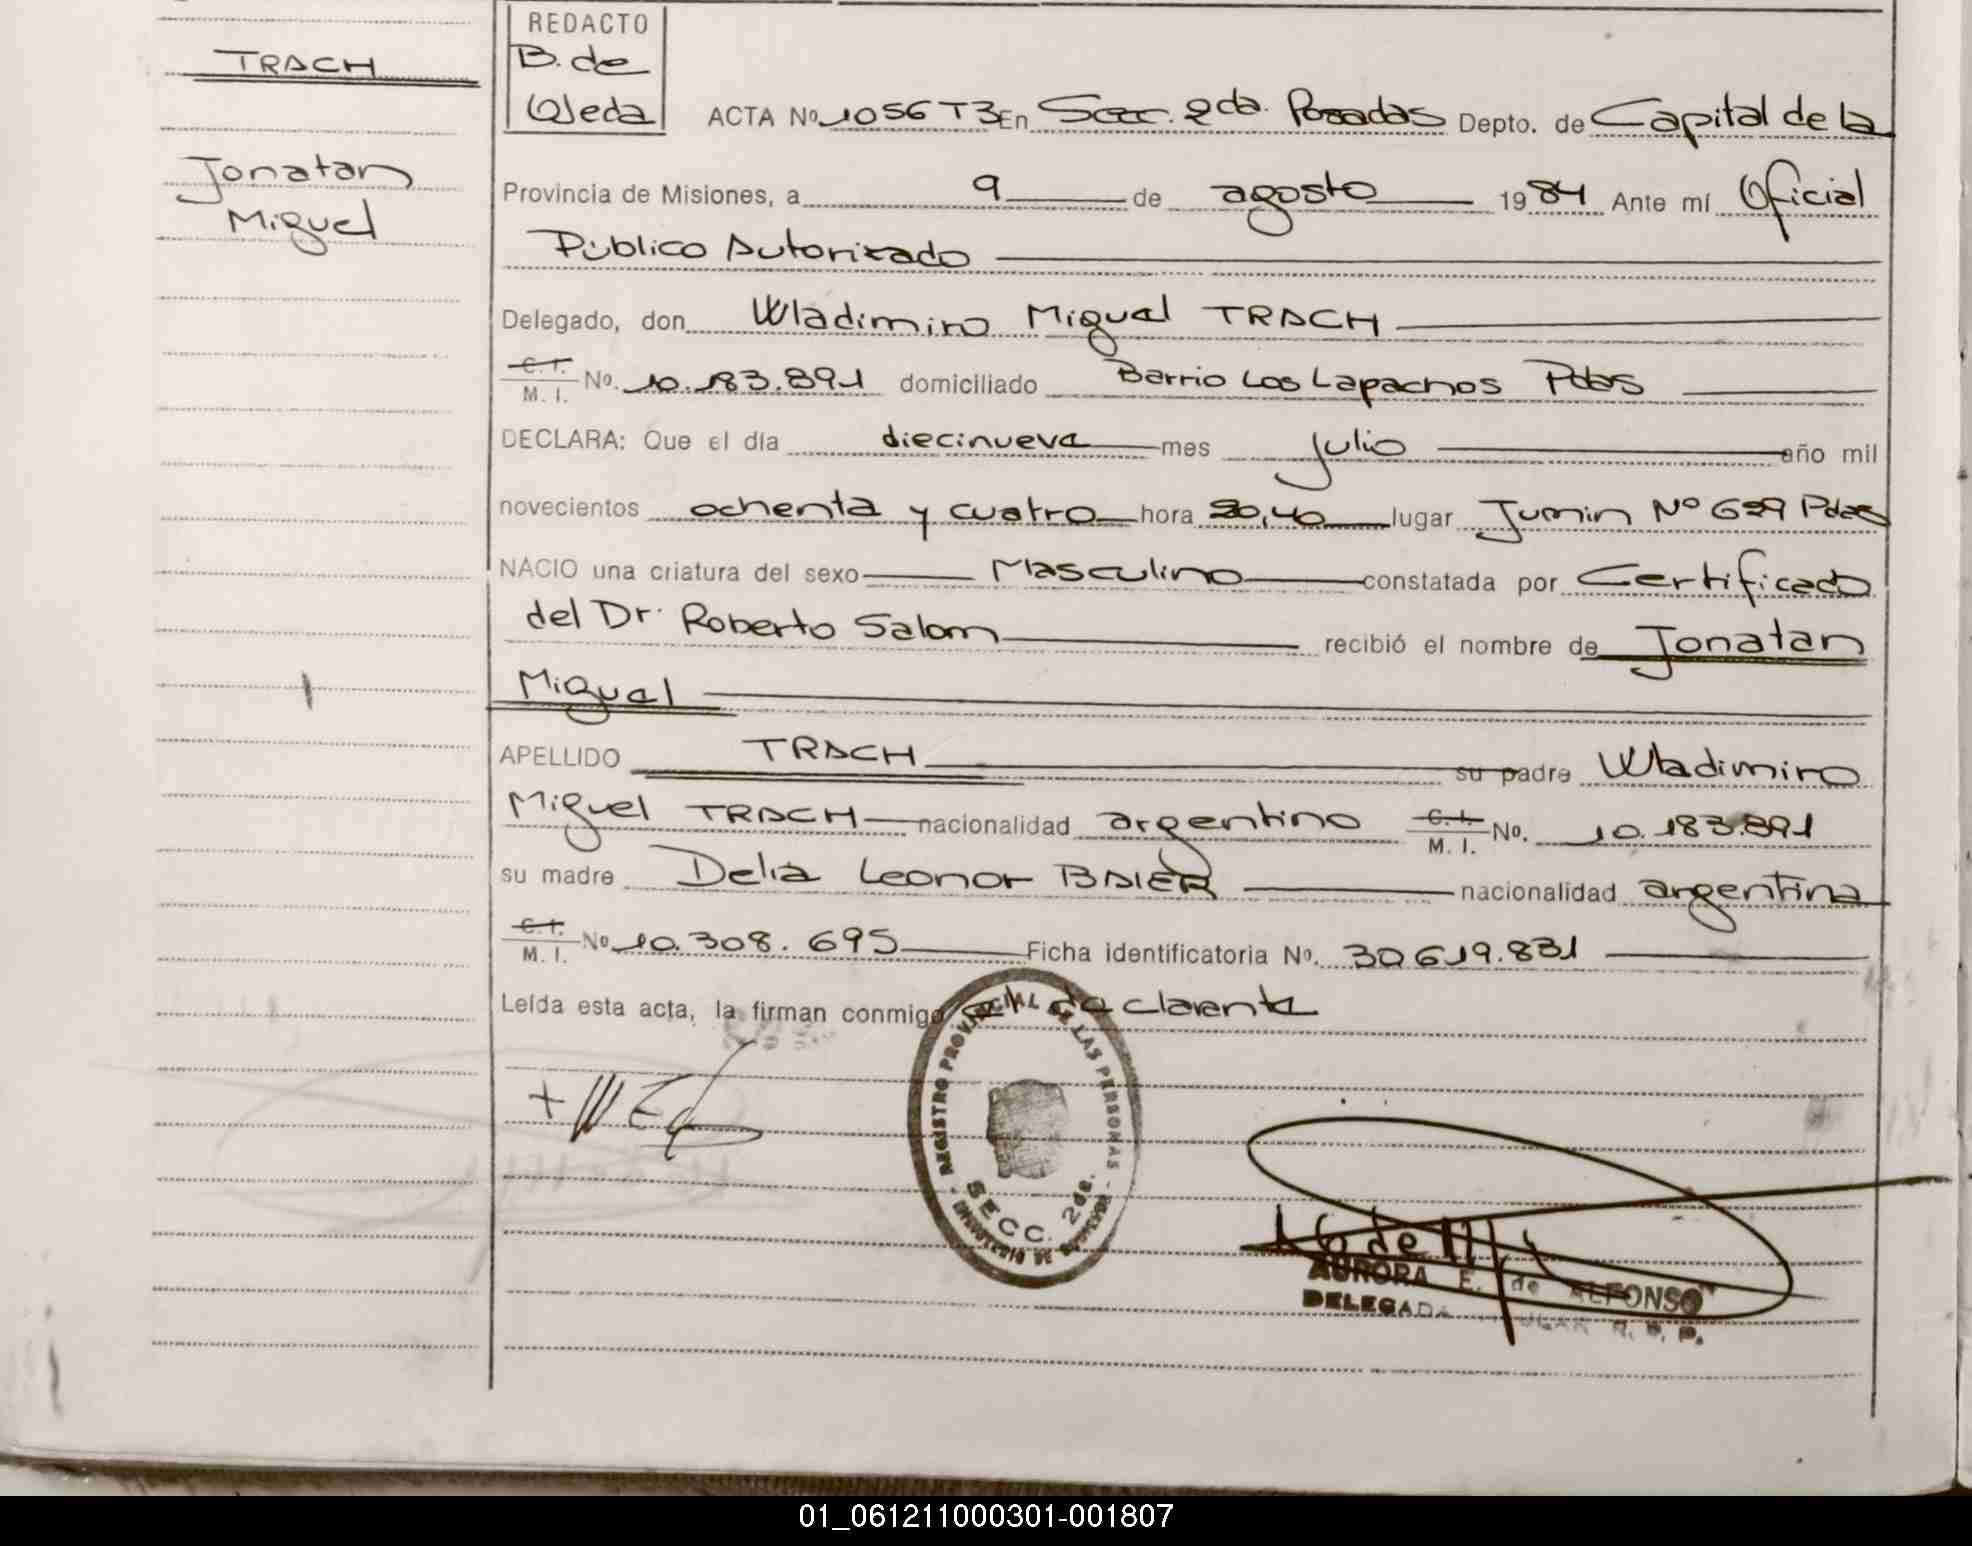 TRACH
Jonatan
Miguel
REDACTO
B. de
Ojeda
ACTA Nº 1056 T3 En Secc. 2da. Posadas Depto. de Capital de la
Provincia de Misiones, a 9 de agosto 1984 Ante mí Oficial
Público Autorizado
Delegado, don Wladimiro Miguel TRACH
C. I.
M. I. Nº. 10.183.891 domiciliado Barrio Los Lapachos Pdas
DECLARA: Que el día diecinueve mes julio año mil
novecientos ochenta y cuatro hora 20,40 lugar Junin Nº 629 Pdas
NACIO una criatura del sexo Masculino constatada por Certificado
del Dr. Roberto Salom recibió el nombre de Jonatan
Miguel
APELLIDO TRACH su padre Wladimiro
Miguel TRACH nacionalidad argentino C. I. M. I. Nº. 10.183.891
su madre Delia Leonor BAIER nacionalidad argentina
C. I.
M. I. Nº 10.308.695 Ficha identificatoria Nº. 30619.831
Leída esta acta, la firman conmigo el declarante
REGISTRO PROVINCIAL DE LAS PERSONAS
SECC. 2da.
AURORA E. de ALFONSO
DELEGADA TITULAR R. P. P.
01_061211000301-001807